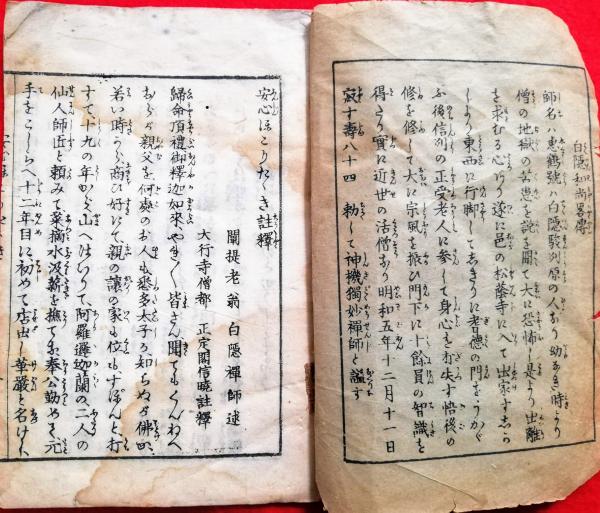 白隠和尚畧傳
師名ハ恵鶴號ハ白隠駿刕原の人なり幼き時より
僧の地獄の苦患を説を聞て大に恐怖し是より出離
を求むる心あり遂に邑の松蔭寺に入て出家す
しより東西に行脚してしきりに老徳の門をうかゞ
ふ後信刕の正受老人に参して身心を打失す悟後の
修を修して大に宗風を振ひ門下に十餘員の智識を
得たり實に近世の活僧なり明和五年十二月十一日
寂す壽八十四　勅して神機獨妙禅師と諡す
安心ほこりたゝき註釋
闡提老翁　白隠禅師述
大行寺僧都　正定閣信暁註釋
歸命頂禮御釋迦如來やれ〳〵皆さん聞てもくんねへ
おらが親父を何處のお人も悉多太子か知ちぬが佛
若い時から商ひ好にて、親の讓の家も位もすぽんと打
すて十九の年から山へはいりて、阿羅邏迦蘭の二人の
仙人師匠と頼みて菓摘水汲薪を撫てお奉公勤める元
手をこしらへ十二年目に初めて店出し華嚴と名けた